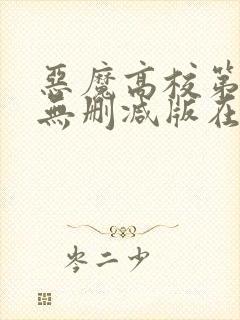 惡魔高校第
無刪減版在
岑二少